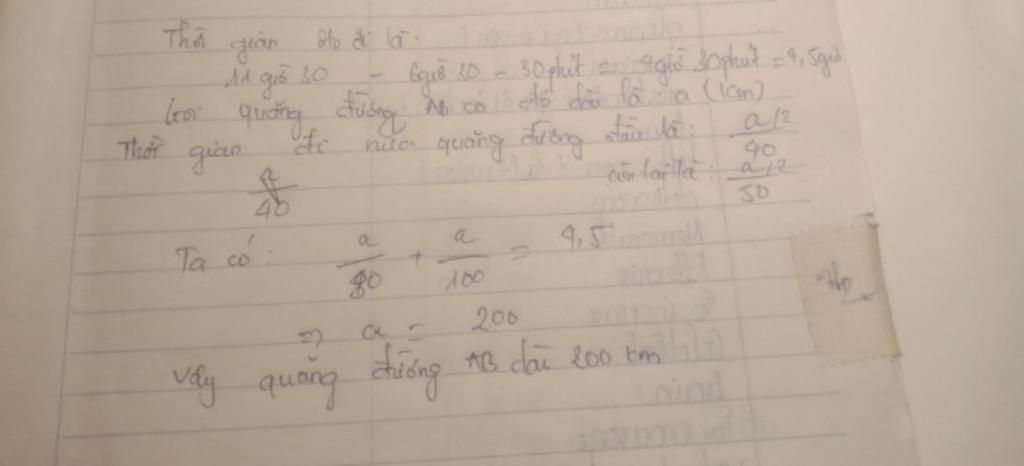 Thời gian ôtô đi là:
11 giờ 30 - 6giờ 30 - 30 phút = 4 giờ 30 phút = 4,5 giờ
Gọi quãng đường AB có độ dài là a (km)
Thời gian đi nửa quãng đường đầu là: a/2 / 40
a / 40 còn lại là: a/2 / 50
Ta có: a/80 + a/100 = 4,5
=> a = 200
Vậy quãng đường AB dài 200 km